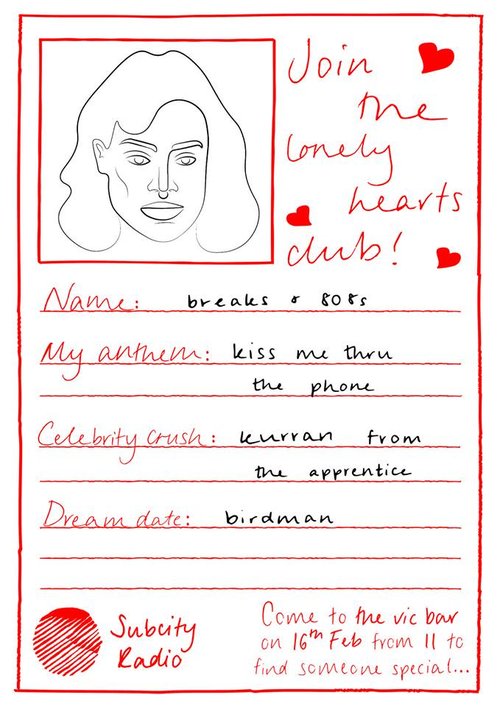 Join
the
lonely
hearts
club!
Name: breaks & 808s
My anthem: kiss me thru
the phone
Celebrity crush: kurran from
the apprentice
Dream date: birdman
Subcity
Radio
Come to the vic bar
on 16th Feb from 11 to
find someone special...